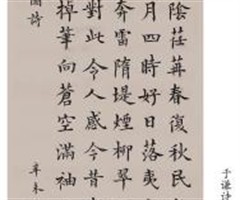 陰荏苒春復秋民
月四時好日落夷
奔雷隋堤煙柳翠
對此令人感今昔
掉筆向蒼空滿袖
圖詩
辛未
于谦诗